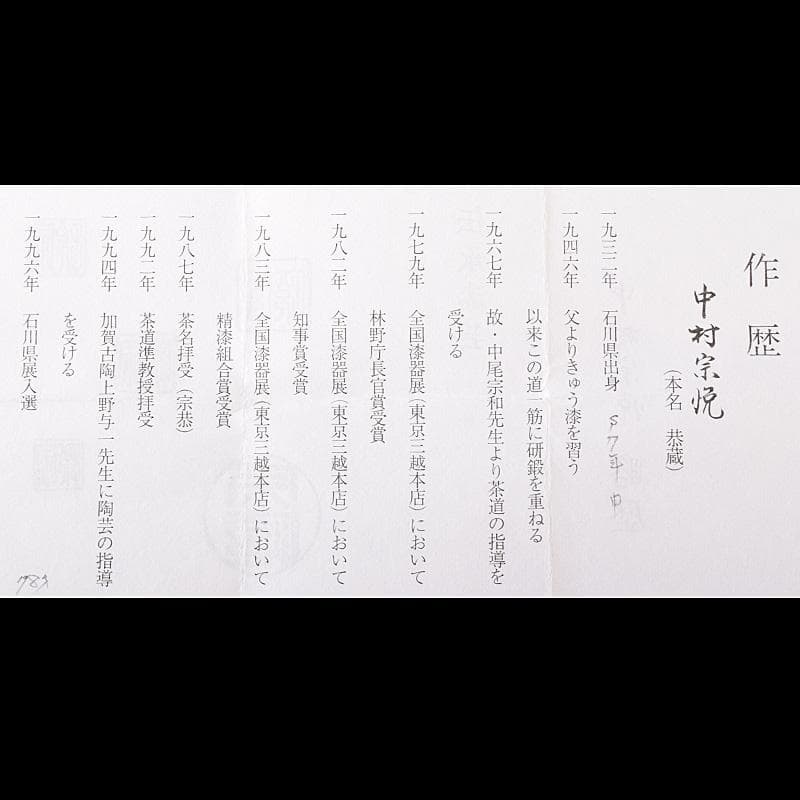 作歴
中村宗悦
(本名　恭蔵)
一九三二年　石川県出身　S7年
一九四六年　父よりきゅう漆を習う
以来この道一筋に研鍛を重ねる
一九六七年　故・中尾宗和先生より茶道の指導を
受ける
一九七九年　全国漆器展(東京三越本店)において
林野庁長官賞受賞
一九八二年　全国漆器展(東京三越本店)において
知事賞受賞
一九八三年　全国漆器展(東京三越本店)において
精漆組合賞受賞
一九八七年　茶名拝受(宗恭)
一九九二年　茶道準教授拝受
一九九四年　加賀古陶上野与一先生に陶芸の指導
を受ける
一九九六年　石川県展入選